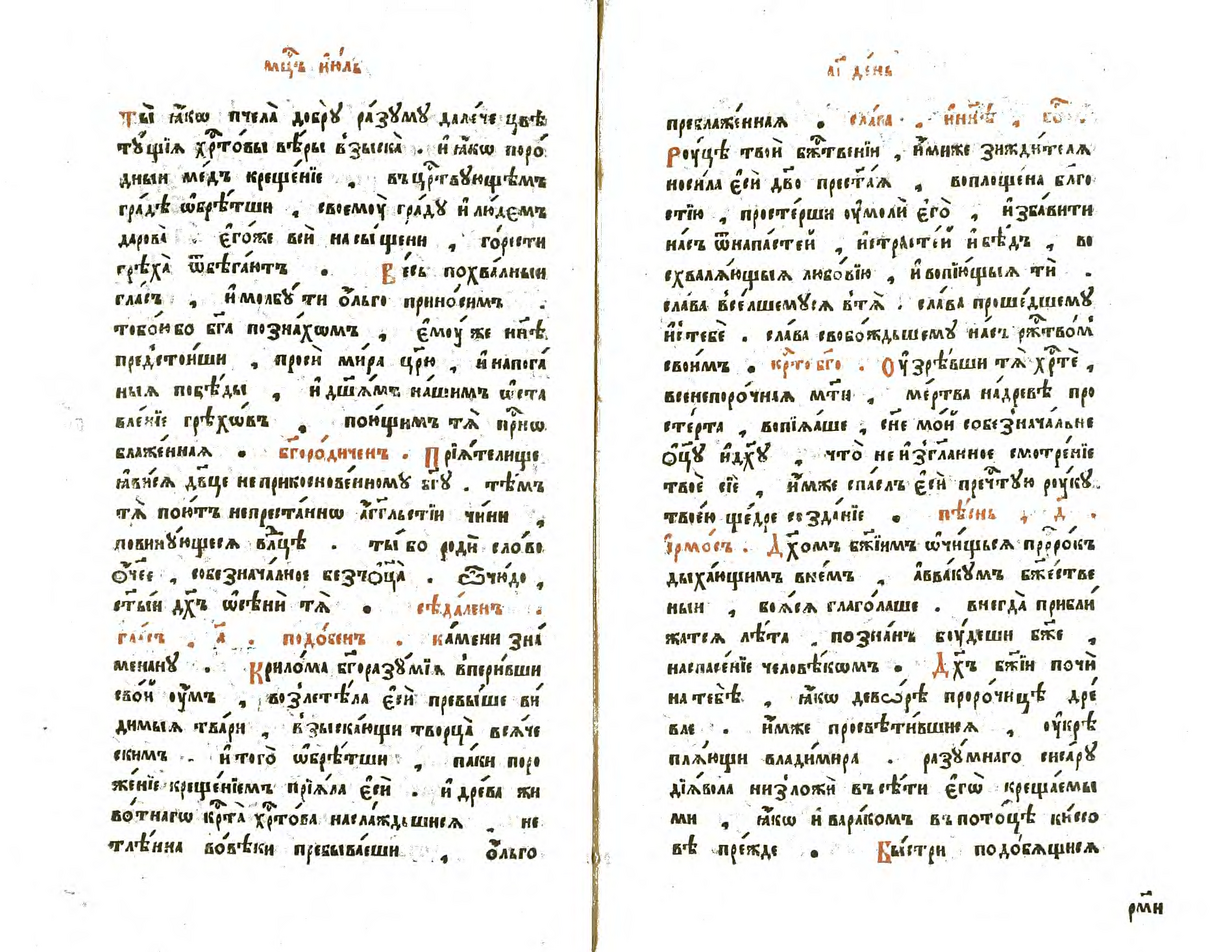 мц҃ъ и҆ю́ль
Ты̀ ꙗ҆́кѡ пчела̀ добрꙋ̀ ра́зꙋмꙋ дале́че цвѣ
тꙋ́щїѧ хрⷭ҇то́вы вѣ́ры взыска̀ . и҆ ꙗ҆́кѡ поро́
дныи ме́дъ креще́нїе , въцрⷭ҇твꙋющѣмъ
гра́дѣ ѡ҆брѣ́тши , своемꙋ̀ гра́дꙋ и҆ лю́демъ
дарова̀ є҆го́же всѝ насы́щени , го́рести
грѣха̀ ѿбѣга́ютъ . Ве́сь похва́лныи
гла́съ , и҆ молбꙋ́ ти ѻ҆́льго прино́симъ .
тобо́и бо бг҃а позна́хѡмъ , є҆мꙋ́же нн҃ѣ
предстои́ши , просѝ ми́ра цр҃ю̀ , и҆ напога́
ныѧ побѣ́ды , и҆ дш҃а́мъ на́шимъ ѡ҆ста
вле́нїе грѣхѡ́въ , пою́щимъ тѧ̀ при́нѡ
блаже́ннаѧ . бг҃оро́диченъ . Прїѧ́телище
ꙗ҆ви́сѧ дв҃це неприкосно́венномꙋ бг҃ꙋ . тѣ́мъ
тѧ̀ пою́тъ непреста́ннѡ а҆́гг҃льстїи чи́ни ,
повинꙋ́ющесѧ влⷣцѣ . ты́ бо родѝ сло́во
ѻ҆́ч҃ее , собезнача́лное безъѻ҆ц҃а̀ . ѽ чю́до ,
ст҃ы́и дх҃ъ ѡ҆сѣнѝ тѧ̀ . сѣда́ленъ .
гла́съ . а҃ . подо́бенъ . ка́мени зна́
менанꙋ . Крило́ма бг҃оразꙋ́мїѧ впери́вши
сво́и оу҆́мъ , возлетѣ́ла є҆сѝ превы́ше ви́
димыѧ тва́ри , взыска́ющи творца̀ всѧ́че
скимъ . и҆ того̀ ѡ҆брѣ́тши , па́ки поро
же́нїе креще́нїемъ прїѧ́ла є҆сѝ . и҆ дре́ва жи
во́тнагѡ крⷭ҇та̀ хрⷭ҇то́ва наслажьдшисѧ , не
тлѣ́нна во́вѣки пребыва́еши , ѻ҆́льго
а҃і де́нь
преблаже́ннаѧ . сла́ва . и҆ нн҃ѣ . бо҃ .
Рꙋ́цѣ твоѝ бжⷭ҇твенїи , и҆́миже зижди́телѧ
носи́ла є҆сѝ дв҃о прест҃а́ѧ , воплоще́на бл҃го
стїю , просте́рши оу҆молѝ є҆го̀ , и҆зба́вити
на́съ ѿнапа́стеи , и҆ страсте́и и҆ бѣ́дъ , во
схвалѧ́ющыѧ любо́вїю , и҆ вопїю́щыѧ тѝ .
сла́ва всѣ́лшемꙋсѧ в тѧ̀ . сла́ва проше́дшемꙋ
ис тебѐ . сла́ва свобо́ждьшемꙋ на́съ ржⷭ҇тво́м̾
свои́мъ . крⷭ҇то бг҃о . Оу҆зрѣ́вши тѧ̀ хрⷭ҇тѐ ,
всенепоро́чнаѧ мт҃и , ме́ртва на́древѣ про
сте́рта , вопїѧ́ше , сн҃е мо́и собезнача́льне
ѻ҆ц҃ꙋ̀ и҆ дх҃ꙋ , что̀ неи҆згл҃анное смотре́нїе
твоѐ сїѐ , и҆́мже спа́слъ є҆сѝ пречⷭ҇тꙋю рꙋ́кꙋ
твое́ю ще́дре созда́нїе . пѣ́снь , д҃ .
І҆рмо́съ . Дх҃омъ бж҃їимъ ѡ҆чи́щьсѧ прⷪ҇ро́къ
дыха́ющимъ вне́мъ , а҆ввакꙋ́мъ бж҃е́стве
ныи , боѧ́сѧ глаго́лаше . внегда̀ прибли́
жатсѧ лѣ́та , позна́нъ бꙋ́деши бж҃е ,
наспасе́нїе человѣ́кѡмъ . Дх҃ъ бж҃їи почѝ
на тебѣ̀ , ꙗ҆́кѡ девѡ́рѣ проро́чицѣ дре́
вле . и҆́мже просвѣти́вшисѧ , оу҆крѣ
плѧ́ющи влади́мира . разꙋ́мнаго сиса́рꙋ
дїѧ́вола низложѝ въ сѣ́ти є҆гѡ̀ креща́емы
ми , ꙗ҆́кѡ и҆ вара́комъ въ пото́цѣ ки́ссо
вѣ пре́жде . Бы́стри подобѧ́щисѧ
рм҃и